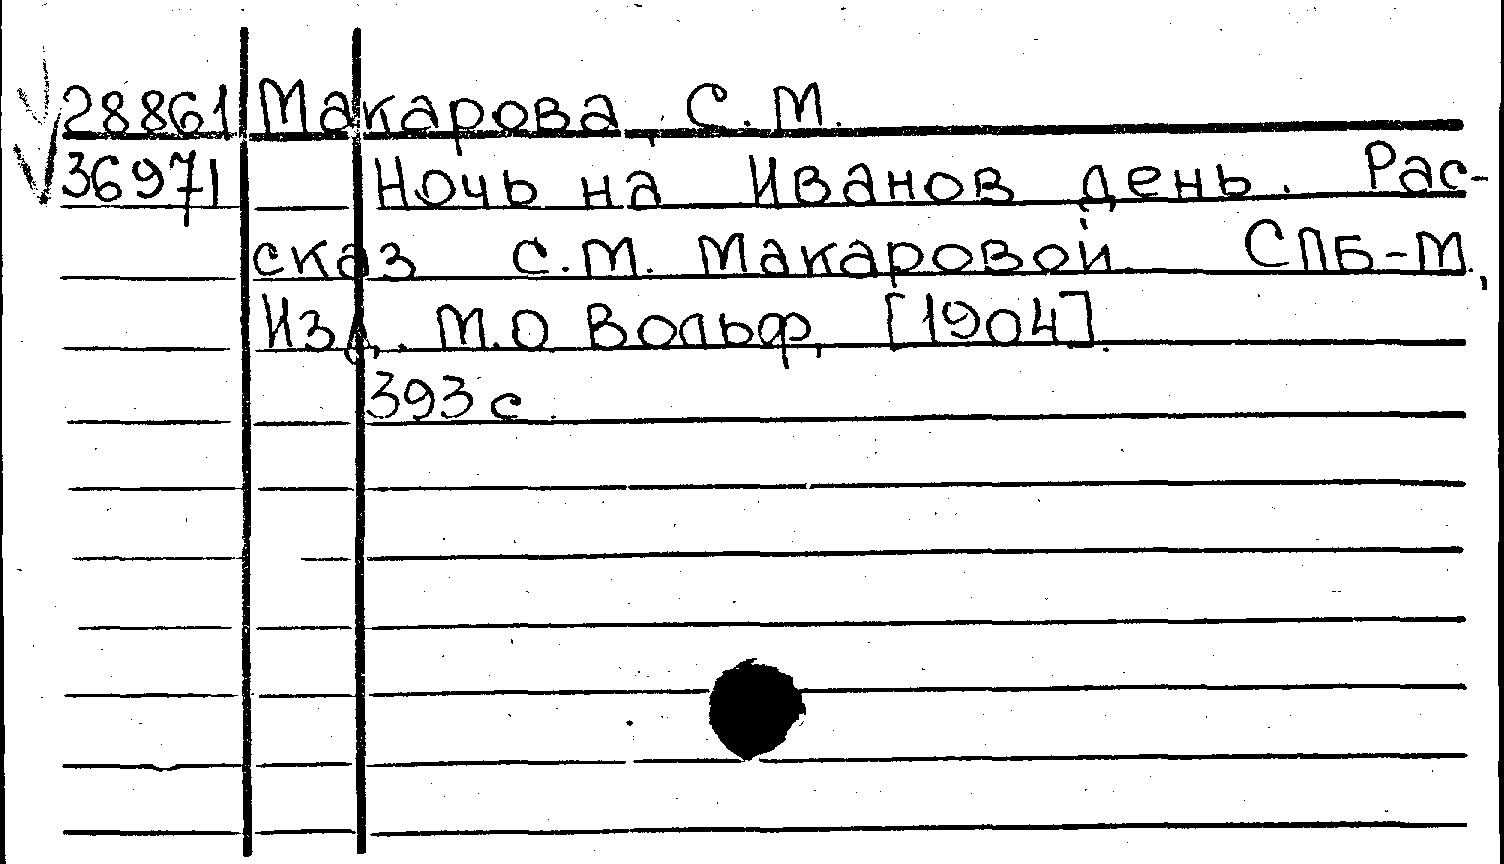 28861 Макарова, С. М.
36971 Ночь на Иванов день. Рас-
сказ С.М. Макаровой СПБ-М.,
Изд. М.О Вольф, [1904].
393 с.